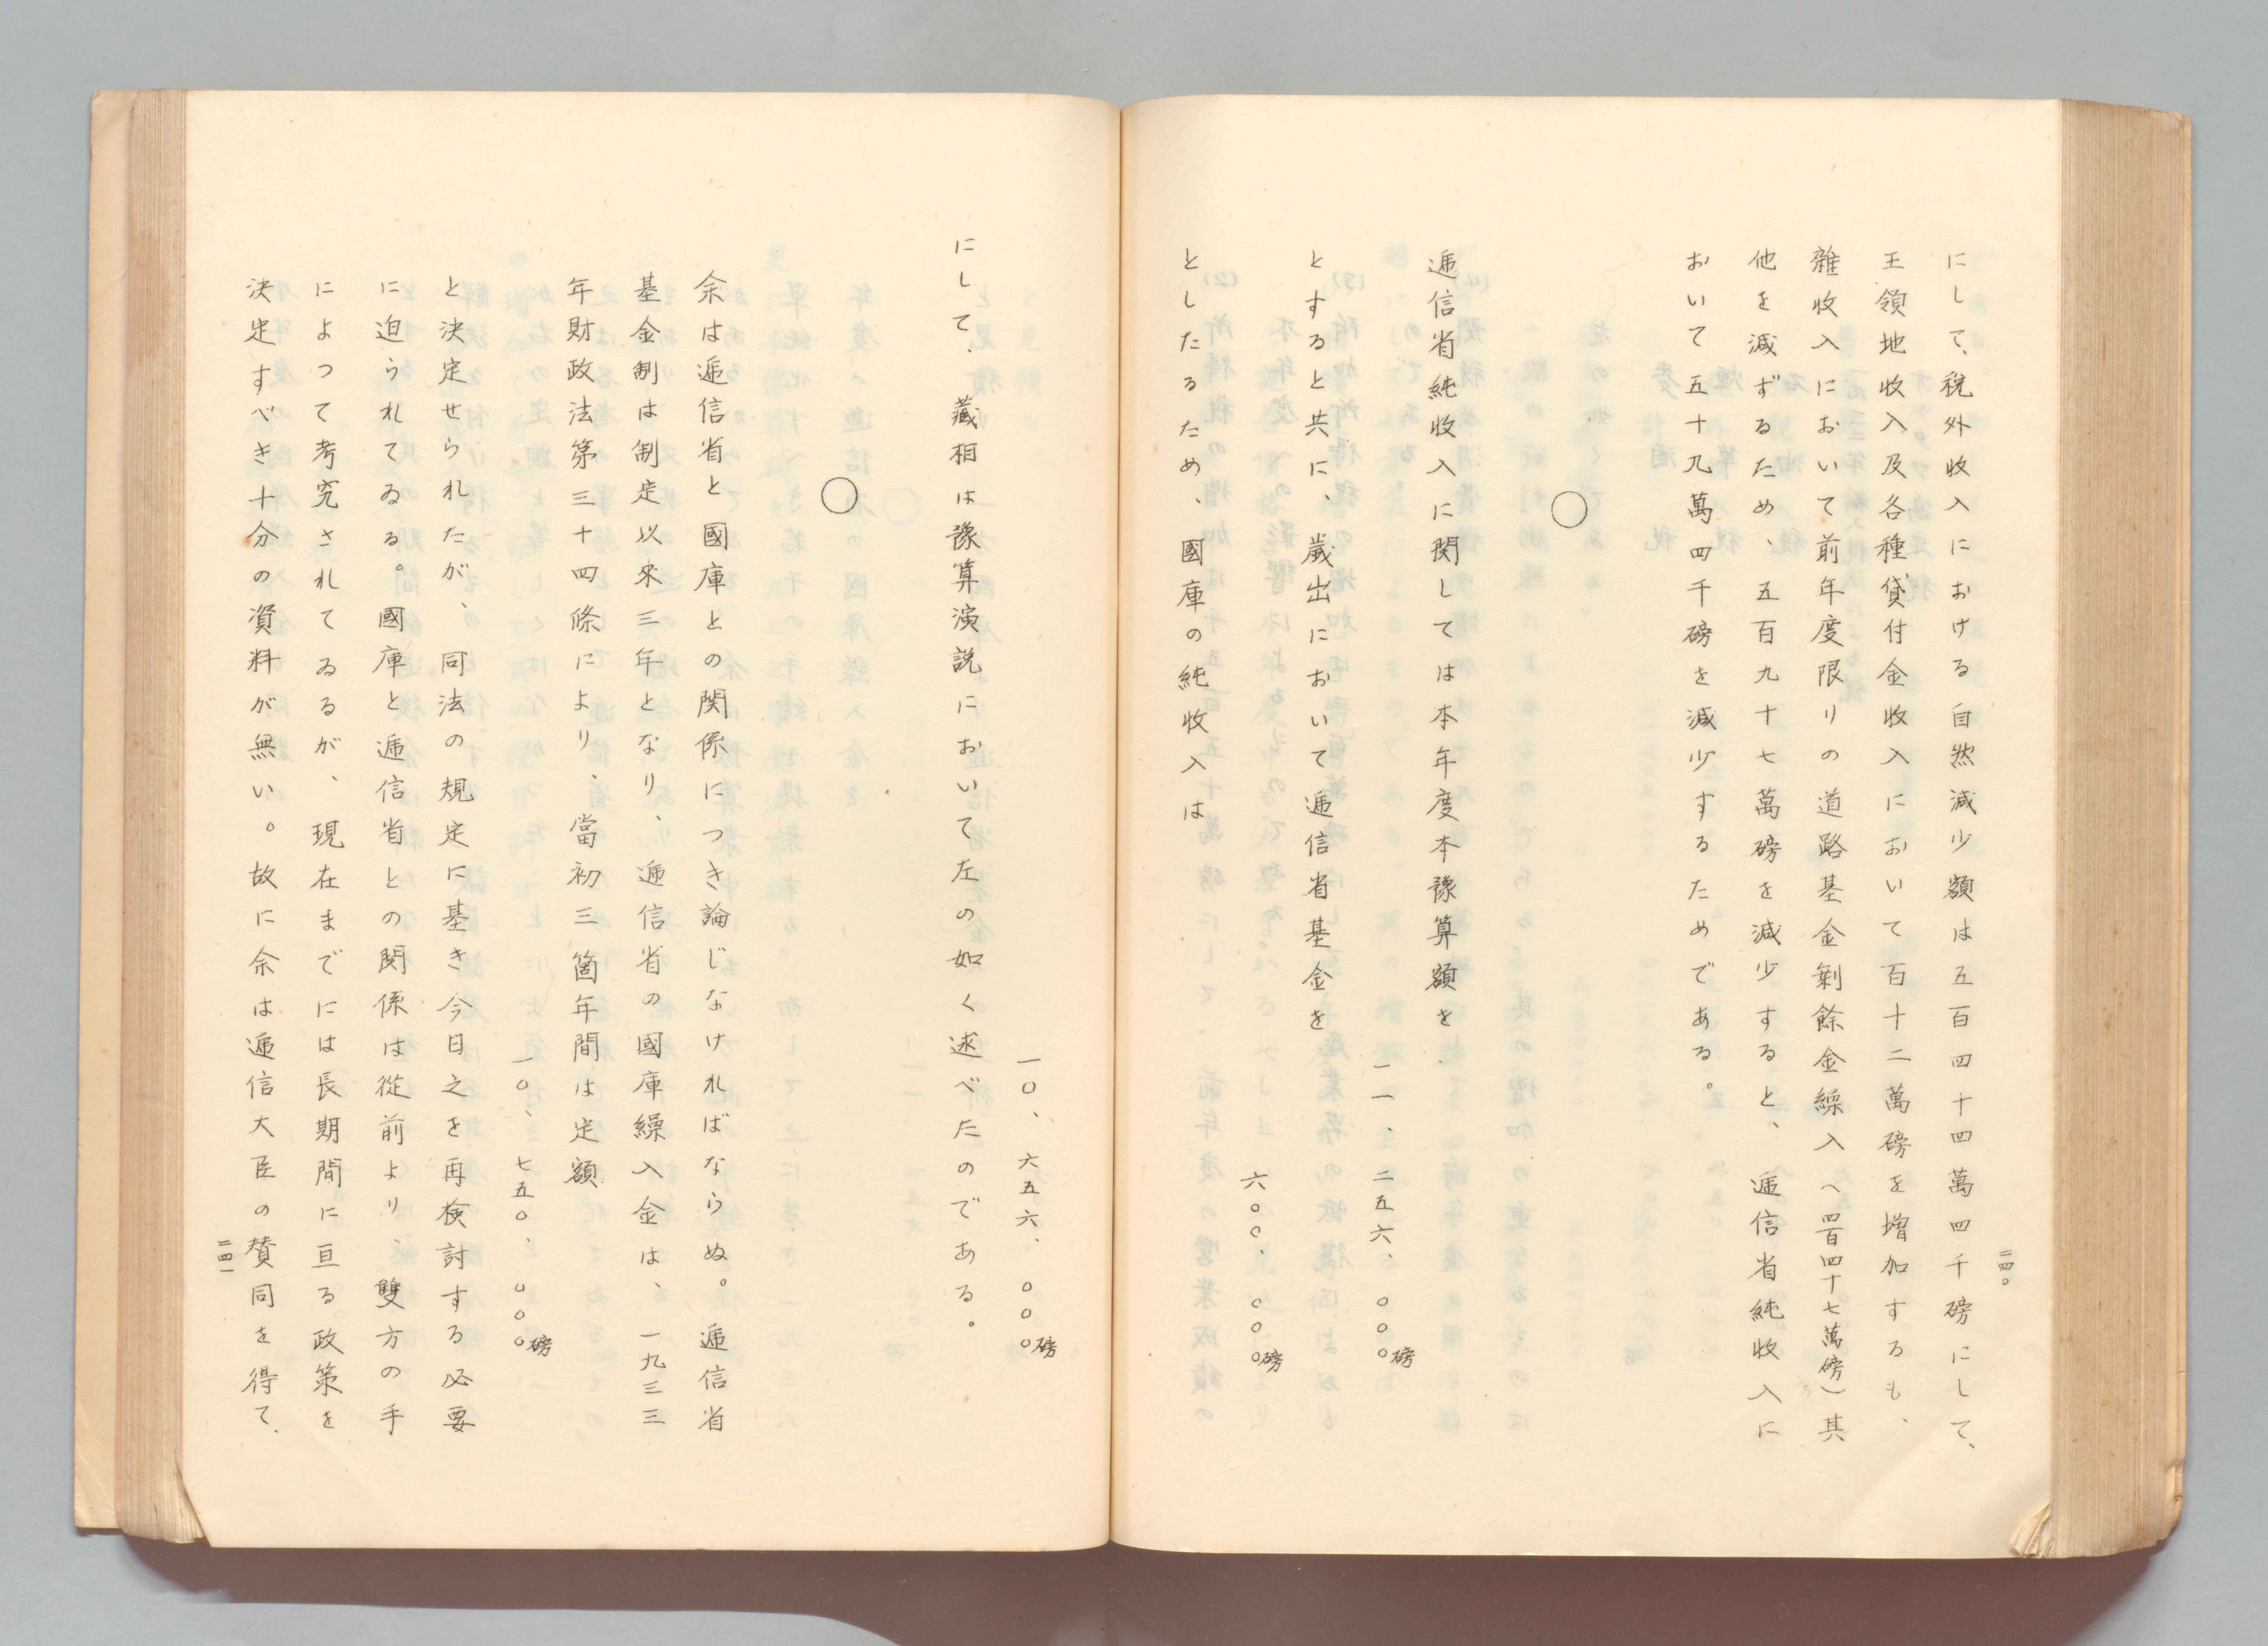 二四〇
にして、税外收入における自然減少額は五百四十四萬四千磅にして、
王領地收入及各種貸付金收入において百十二萬磅を增加するも、
雜收入において前年度限りの道路基金剩餘金繰入（四百四十七萬磅）其
他を減ずるため、五百九十七萬磅を減少すると、遞信省純收入に
おいて五十九萬四千磅を減少するためである。
○
遞信省純收入に関しては本年度本豫算額を
一一、二五六、〇〇〇磅
とすると共に、歲出において遞信省基金を
六〇〇、〇〇〇磅
としたるため、國庫の純收入は
一〇、六五六、〇〇〇磅
にして、藏相は豫算演説において左の如く述べたのである。
○
余は遞信省と國庫との関係につき論じなければならぬ。遞信省
基金制は制定以来三年となり、遞信省の國庫繰入金は、一九三三
年財政法第三十四條により、當初三箇年間は定額
一〇、七五〇、〇〇〇磅
と決定せられたが、同法の規定に基き今日之を再檢討する必要
に迫られてゐる。國庫と遞信省との関係は從前より、雙方の手
によつて考究されてゐるが、現在までには長期間に亘る政策を
決定すべき十分の資料が無い。故に余は遞信大臣の賛同を得て、
二四一